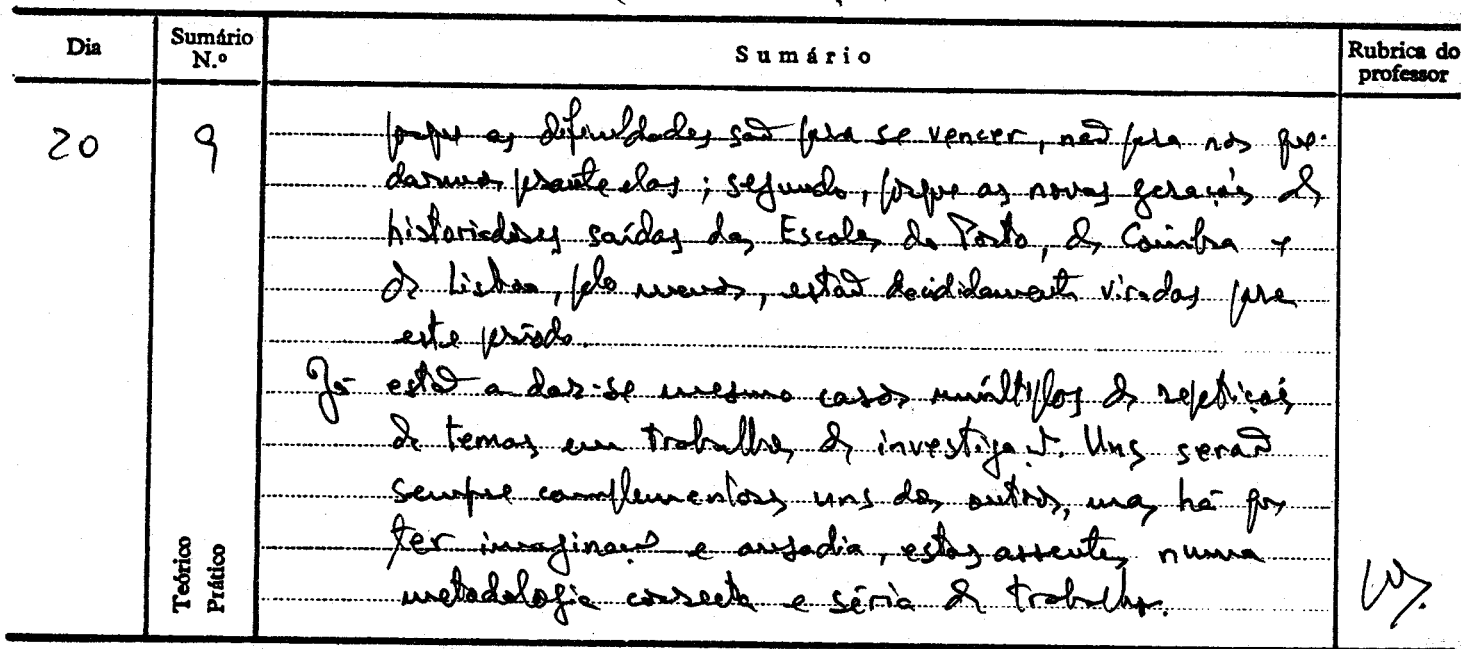 Dia
Sumário
N.º
Sumário
Rubrica do
professor
20
9
porque as dificuldades são para se vencer, não para nos que-
darmos perante elas; segundo, porque as novas gerações de
historiadores saídas das Escolas do Porto, de Coimbra e
de Lisboa, pelo menos, estão decididamente viradas para
este período.
Já estão a dar-se mesmo casos múltiplos de repetições
de temas em trabalhos de investigação. Uns serão
sempre complementos uns dos outros, mas há que
ter imaginação e ousadia, estas assentes numa
metodologia correcta e séria de trabalho.
Teórico
Prático